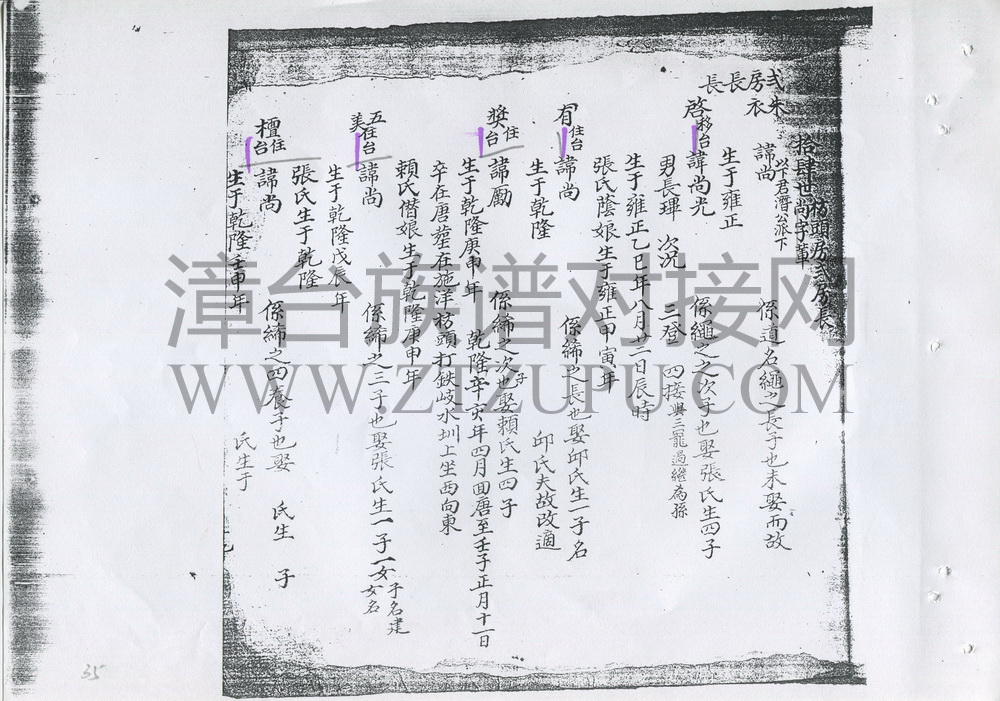 枋頭房弍房長
拾肆世尚字輩
以下君潛公派下
弍房長長
朱衣
諱尚
係道名繩之長子也未娶而故
生于雍正
啓移台
諱尚光
係繩之之次子也娶張氏生四子
男長琿 次況 三登 四接與三罷過繼為孫
生于雍正乙巳年八月廿二日辰時
張氏蔭娘生于雍正甲寅年
有住台
諱尚
係締之長也娶邱氏生一子名
生于乾隆
邱氏夫故改適
奬住台
諱勵
係締之次子也娶賴氏生四子
生于乾隆庚申年 乾隆辛亥年四月回唐至壬子正月十一日
卒在唐塟在施洋枋頭打鉄岐水圳上坐西向東
賴氏偕娘生于乾隆庚申年
五美住台
諱尚
係締之三子也娶張氏生一子一女
子名建
女名
生于乾隆戊辰年
張氏生于乾隆
檀住台
諱尚
係締之四養子也娶 氏生 子
生于乾隆壬申年
氏生于
漳台族谱对接网
WWW.ZTZUPU.COM
35